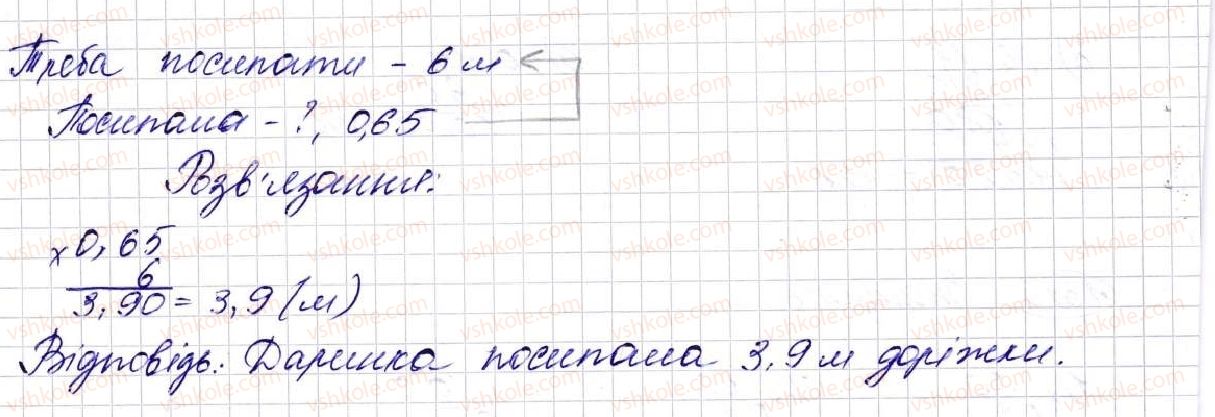 Треба посипати - 6 м
Посипала - ?, 0,65
Розв'язання:
× 0,65
6
3,90 = 3,9 (м)
Відповідь: Даринка посипала 3,9 м доріжки.